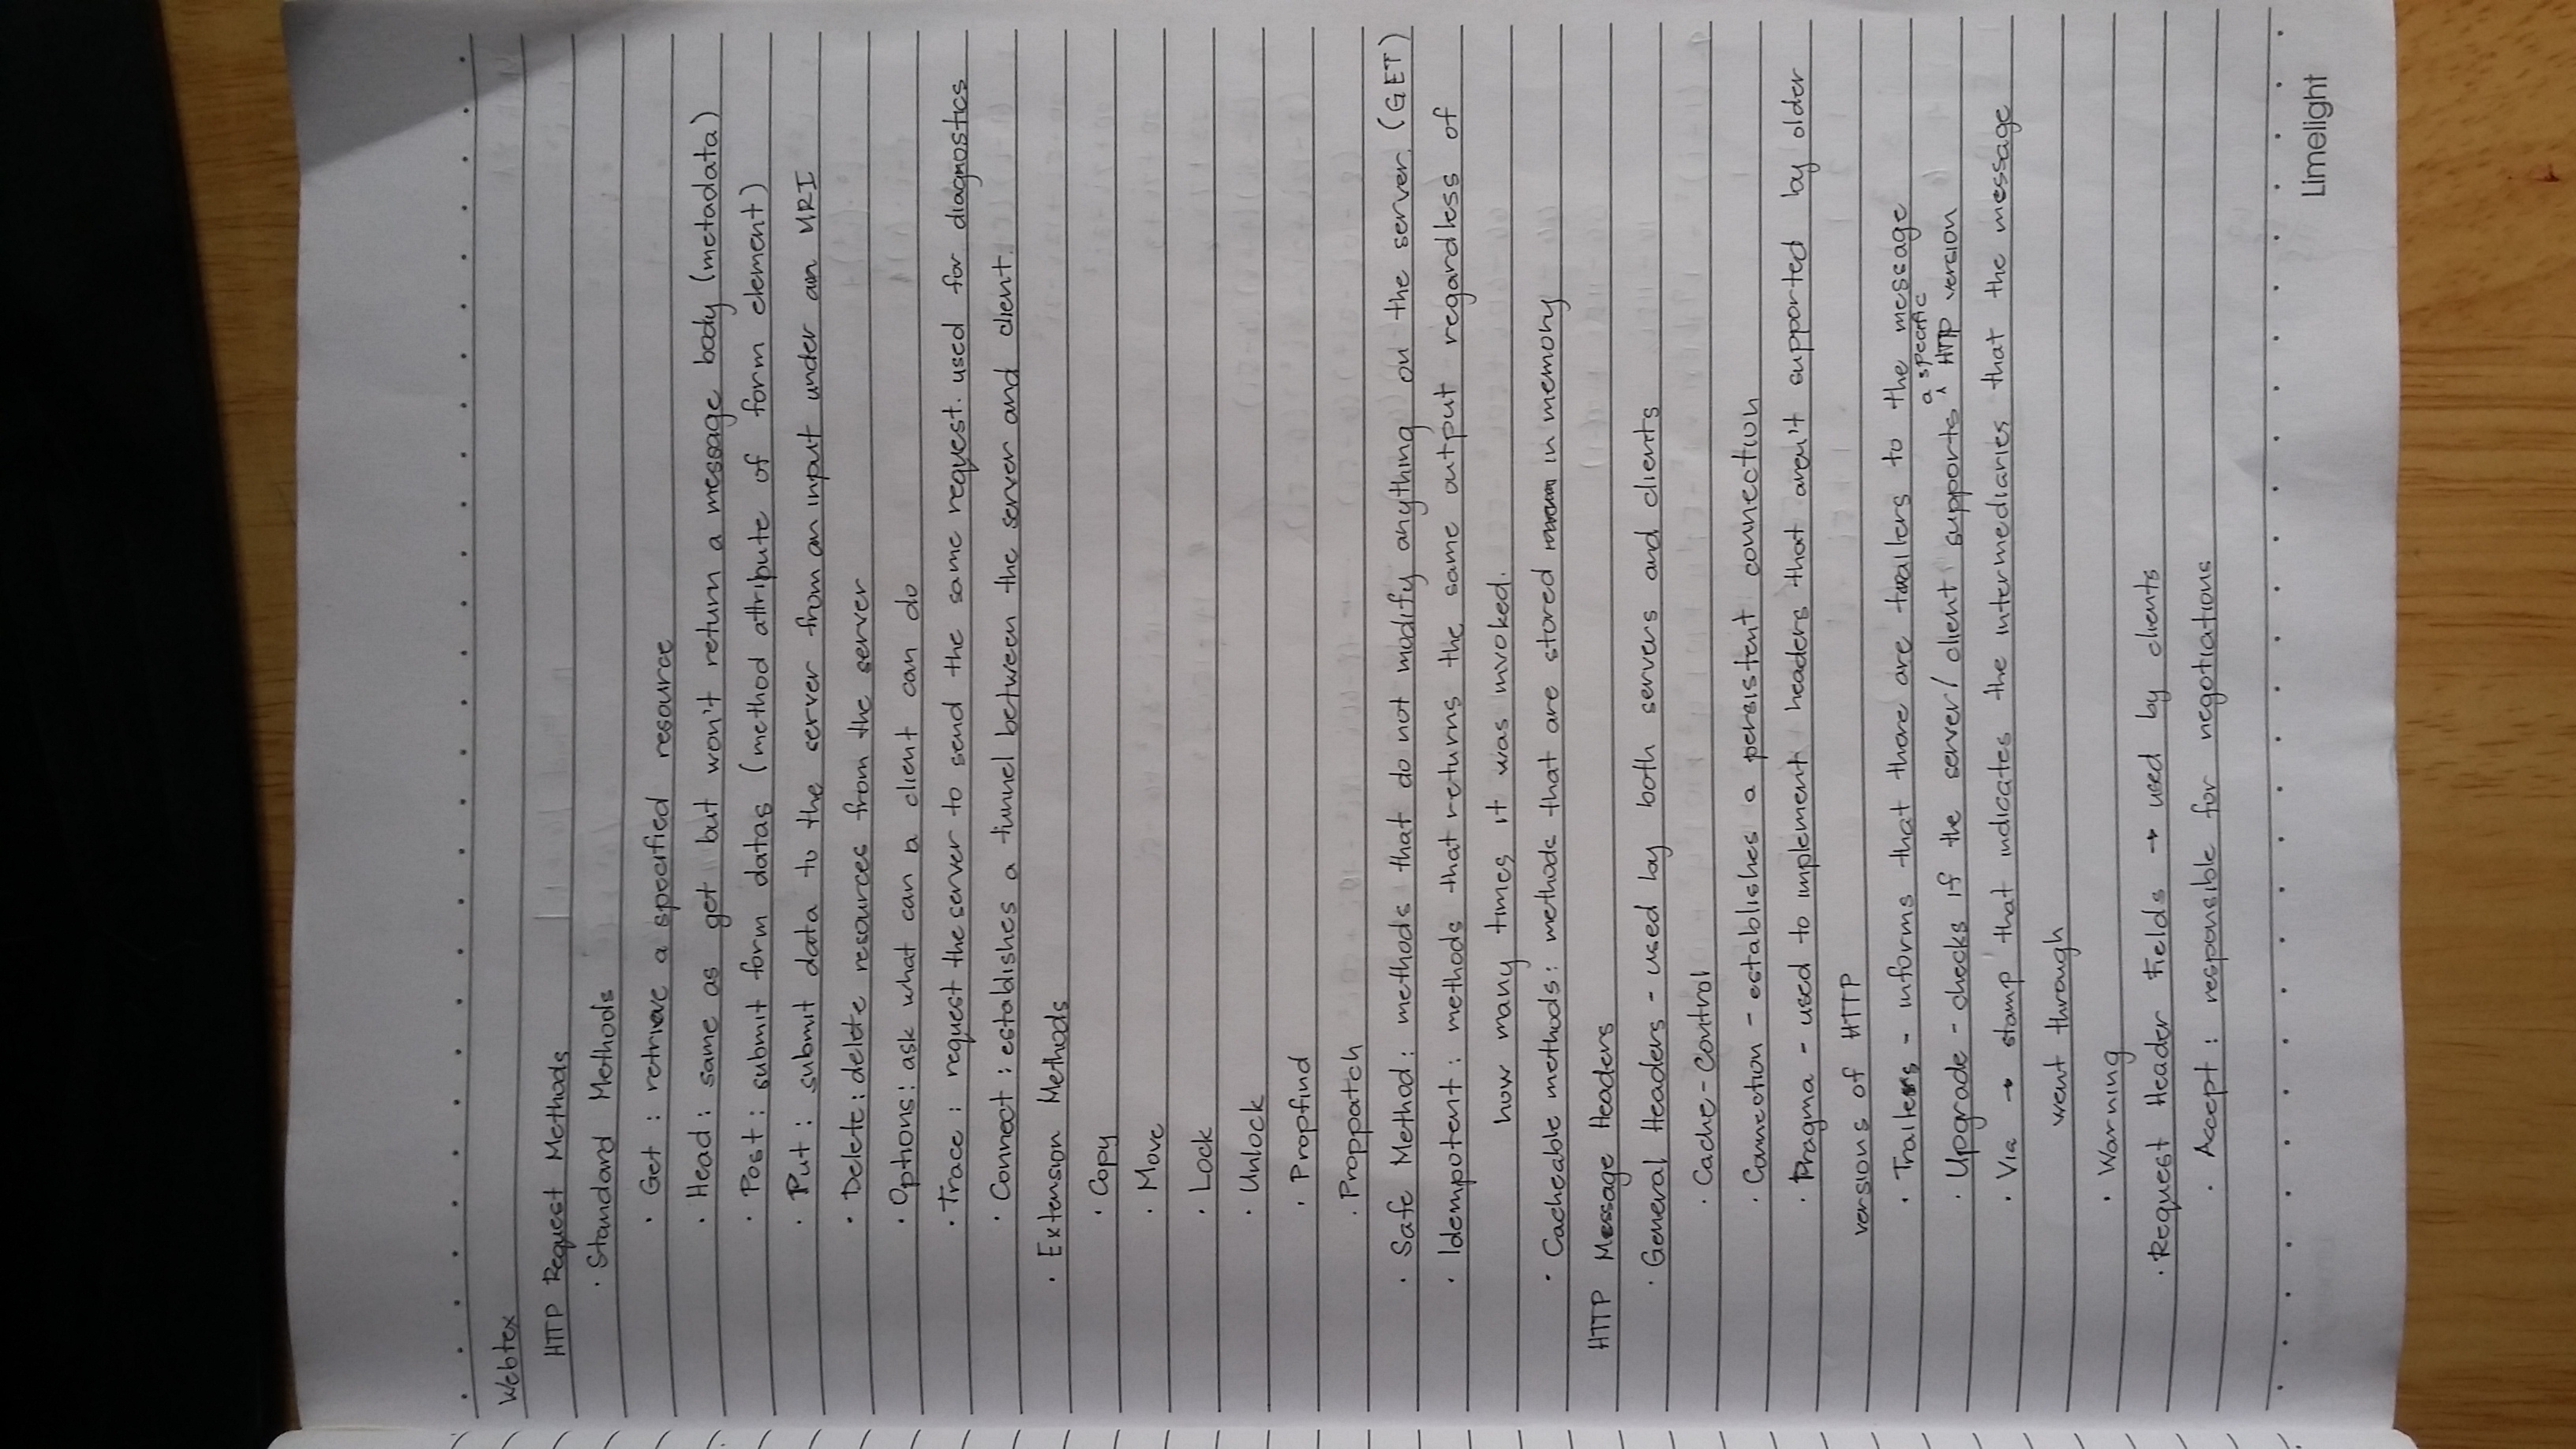 Webtex
HTTP Request Methods
· Standard Methods
· Get : retrieve a specified resource
· Head : same as get but won't return a message body (metadata)
· Post : submit form datas (method attribute of form element)
· Put : submit data to the server from an input under an URI
· Delete : delete resources from the server
· Options : ask what can a client can do
· Trace : request the server to send the same request. used for diagnostics
· Connect : establishes a tunnel between the server and client.
· Extension Methods
· Copy
· Move
· Lock
· Unlock
· Propfind
· Proppatch
· Safe Method : methods that do not modify anything on the server. (GET)
· Idempotent : methods that returns the same output regardless of
how many times it was invoked.
· Cacheable methods : methods that are stored in memory
HTTP Message Headers
· General Headers - used by both servers and clients
· Cache-Control
· Connection - establishes a persistent connection
· Pragma - used to implement headers that aren't supported by older
versions of HTTP
· Trailers - informs that there are trailers to the message
· Upgrade - checks if the server/client supports a specific HTTP version
· Via → stamp that indicates the intermediaries that the message
went through
· Warning
· Request Header Fields → used by clients
· Accept : responsible for negotiations
Limelight